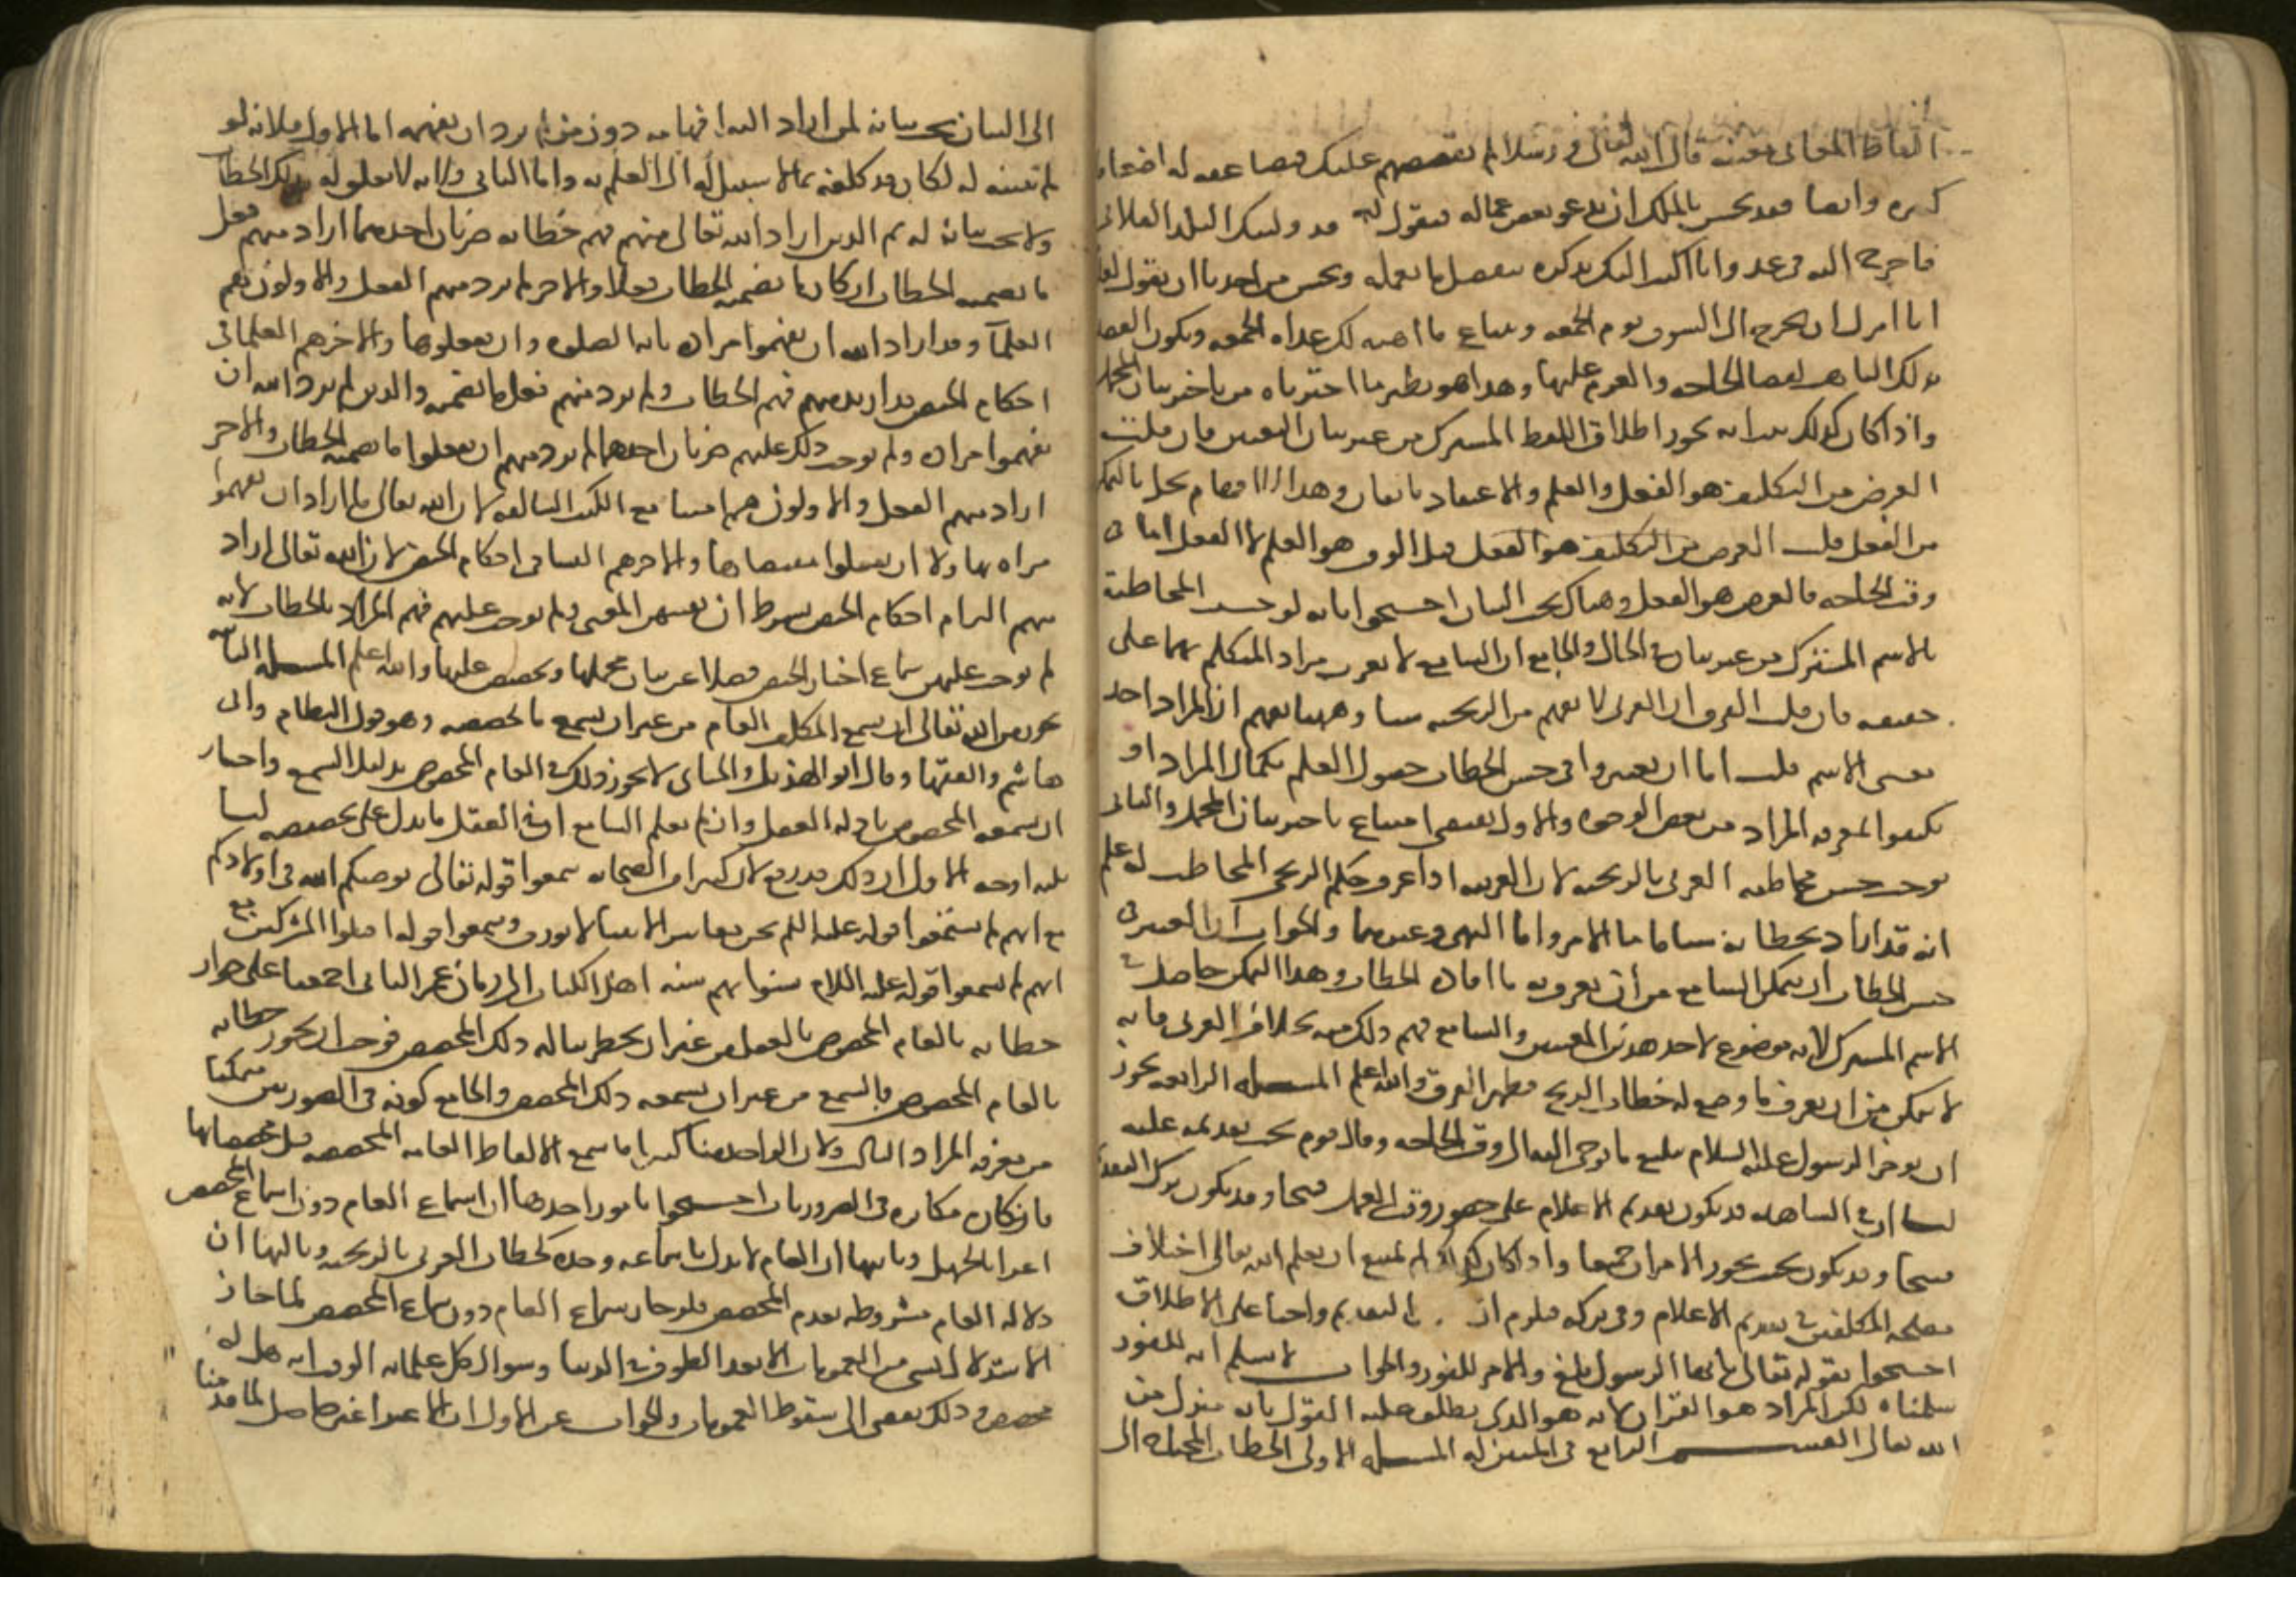 الفاظ المعانى معينه قال الله تعالى ورسلا لم نقصصهم عليك فيضاعفه له اضعافا
كثيره وايضا فقد يحسن بالملك ان يدعو بعض عماله فيقول له قد وليتك البلد الفلانى
فاخرج اليه فى غد وانا اكتب اليك تذكره بتفصيل ما تعمله ويحسن من احدنا ان يقول لغلامه
انا امرك ان تخرج الى السوق يوم الجمعه وتبتاع ما ابينه لك غداه الجمعه ويكون القصد
بذلك التاهب لقضا الحاجه والعزم عليها وهذا هو نظير ما اخترناه من تاخير بيان المجمل
واذا كان كذلك ثبت انه يجوز اطلاق اللفظ المشترك من غير بيان التعيين فان قلت
الغرض من التكليف هو الفعل والعلم والاعتقاد تابعان وهذا الافهام يخل بالتمكن
من الفعل قلت الغرض من التكليف هو الفعل قبل الوقت هو العلم لا الفعل اما فى
وقت الحاجه فالغرض هو الفعل وهناك يجب البيان احتجوا بانه لو حسنت المخاطبة
بالاسم المشترك من غير بيان فى الحال والجامع ان السامع لا يعرف مراد المتكلم بهما على
حقيقه فان قلت الفرق ان العربى لا يفهم من الزنجيه شيا وههنا يفهم ان المراد احد
معنى الاسم قلت اما ان يعتبروا فى حسن الخطاب حصول العلم بكمال المراد او
يكتفوا بمعرفه المراد من بعض الوجوه والاول يقتضى امتناع تاخير بيان المجمل والثانى
يوجب حسن مخاطبه العربى بالزنجيه لان العربى اذا عرف حكم الزنجى المخاطب له علم
انه قد اراد بخطابه شيا ما اما الامر واما النهى وغيرهما والجواب ان المعتبر فى
حسن الخطاب ان يتمكن السامع من ان يعرف به ما افاده الخطاب وهذا التمكن حاصل فى
الاسم المشترك لانه موضوع لاحد هذين المعنيين والسامع فهم ذلك منه بخلاف العربى فانه
لا يتمكن من ان يعرف ما وضع له خطاب الزنج فظهر الفرق والله اعلم المسله الرابعه يجوز
ان يوخر الرسول عليه السلام تبليغ ما يوحى اليه الى وقت الحاجه وقال قوم يجب تقديمه عليه
لنا ان فى المشاهده قد يكون تقديم الاعلام على حضور وقت العمل قبيحا وقد يكون ترك التقديم
قبيحا وقد يكون بحيث يجوز الامران جميعا واذا كان كذلك لم يمتنع ان يعلم الله تعالى اختلاف
مصلحه المكلفين فى تقديم الاعلام وفى تركه فلزم ان التقديم واجبا على الاطلاق
احتجوا بقوله تعالى يا ايها الرسول بلغ والامر للفور والجواب لا نسلم انه للفور
سلمناه لكن المراد هو القران لانه هو الذى يطلق عليه القول بانه منزل من
الله تعالى القسم الرابع فى المبين له المسله الاولى الخطاب المحتاج الى
الى البيان يجب بيانه لمن اراد الله افهامه دون من لم يرد ان يفهمه اما الاول فلانه لو
لم يبينه له لكان قد كلفه بما لا سبيل له الى العلم به واما الثانى فلانه لا تعلق له بذلك الخطاب
ولا يجب بيانه له ثم الذين اراد الله تعالى منهم فهم خطابه ضربان احدهما اراد منهم فعل
ما تضمنه الخطاب ان كان ما تضمنه الخطاب فعلا والاخر لم يرد منهم الفعل والاولون هم
العلماء وقد اراد الله ان يفهموا مراده بايه الصلوه وان يفعلوها والاخر هم العلما فى
احكام الحيض فقد اريد منهم فهم الخطاب ولم يرد منهم فعل ما تضمنه والذين لم يرد الله ان
يفهموا مراده ولم يوجب ذلك عليهم ضربان احدهما لم يرد منهم ان يفعلوا ما تضمنه الخطاب والاخر
اراد منهم الفعل والاولون هم امتنا مع الكتب السالفه لان الله تعالى ما اراد ان يفهموا
مراده بها ولا ان يعملوا بمقتضاها والاخر هم النسا فى احكام الحيض لان الله تعالى اراد
منهم التزام احكام الحيض بشرط ان يفتيهن المفتى ولم يوجب عليهم فهم المراد بالخطاب لانه
لم يوجب عليهن سماع اخبار الحيض فضلا عن بيان مجملها وتخصيص عامها والله اعلم المسله الثانيه
يجوز من الله تعالى ان يسمع المكلف العام من غير ان يسمع ما يخصصه وهو قول النظام وابى
هاشم والفقها وقال ابو الهذيل والجبائى لا يجوز ذلك فى العام المخصوص بدليل السمع واجاز
ان يسمعه المخصوص بادله العقل وان لم يعلم السامع ان فى العقل ما يدل على تخصيصه لنا
ثلثه اوجه الاول ان ذلك قد وقع لان كثيرا من الصحابه سمعوا قوله تعالى يوصيكم الله فى اولادكم
مع انهم لم يسمعوا قوله عليه السلم نحن معاشر الانبيا لا نورث وسمعوا قوله اقتلوا المشركين مع
انهم لم يسمعوا قوله عليه السلام سنوا بهم سنه اهل الكتاب الى زمان عمر الثانى اجمعنا على جواز
خطابه بالعام المخصوص بالعقل من غير ان يخطر بباله ذلك المخصص فوجب ان يجوز خطابه
بالعام المخصوص بالسمع من غير ان يسمعه ذلك المخصص والجامع كونه فى الصورتين متمكنا
من معرفه المراد الثالث ولان الواحد منا كثيرا ما سمع الالفاظ العامه المخصصه قبل مخصصاتها
فانكاره مكابره فى الضروريات احتجوا بامور احدها ان اسماع العام دون اسماع المخصص
اغرا بالجهل وثانيها ان العام لا يدل باسماعه وحده كخطاب العربى بالزنجيه وثالثها ان
دلاله العام مشروطه بعدم المخصص فلو جاز سماع العام دون سماع المخصص لما جاز
الاستدلال بشى من العمومات الا بعد الطوف فى الدنيا وسوال كل علما الوقت انه هل له
مخصص وذلك يفضى الى سقوط العمومات والجواب عن الاول ان الاغرا غير حاصل لما قدمنا